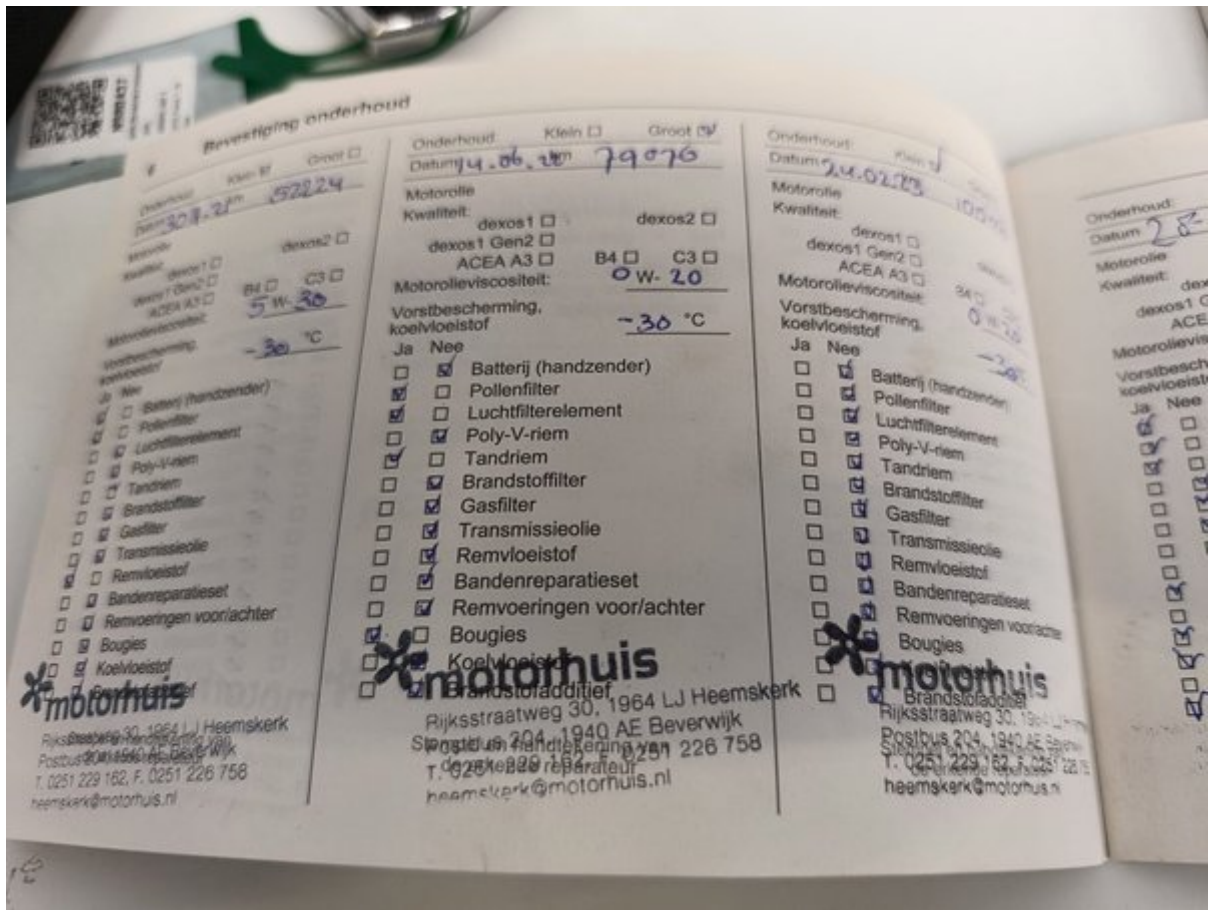 Bevestiging onderhoud
Onderhoud Klein Groot
Datum 30.7.21 km 52224
Motorolie
Kwaliteit:
dexos1 dexos2
dexos1 Gen2
ACEA A3 B4 C3
Motorolieviscositeit: 5 W- 30
Vorstbescherming,
koelvloeistof -30 °C
Ja Nee
Batterij (handzender)
Pollenfilter
Luchtfilterelement
Poly-V-riem
Tandriem
Brandstoffilter
Gasfilter
Transmissieolie
Remvloeistof
Bandenreparatieset
Remvoeringen voor/achter
Bougies
Koelvloeistof
motorhuis
Rijksstraatweg 30, 1964 LJ Heemskerk
Postbus 204, 1940 AE Beverwijk
T. 0251 229 162, F. 0251 226 758
heemskerk@motorhuis.nl
Onderhoud Klein Groot
Datum 14.06. km 79076
Motorolie
Kwaliteit:
dexos1 dexos2
dexos1 Gen2
ACEA A3 B4 C3
Motorolieviscositeit: 0 W- 20
Vorstbescherming,
koelvloeistof -30 °C
Ja Nee
Batterij (handzender)
Pollenfilter
Luchtfilterelement
Poly-V-riem
Tandriem
Brandstoffilter
Gasfilter
Transmissieolie
Remvloeistof
Bandenreparatieset
Remvoeringen voor/achter
Bougies
Koelvloeistof
motorhuis
Brandstofadditief
Rijksstraatweg 30, 1964 LJ Heemskerk
Postbus 204, 1940 AE Beverwijk
Stempel en handtekening van
T. 0251 229 162, F. 0251 226 758
de erkende reparateur
heemskerk@motorhuis.nl
Onderhoud: Klein
Datum 24.02.23
Motorolie
Kwaliteit:
dexos1
dexos1 Gen2
ACEA A3 B4
Motorolieviscositeit: 0 W-20
Vorstbescherming,
koelvloeistof -30
Ja Nee
Batterij (handzender)
Pollenfilter
Luchtfilterelement
Poly-V-riem
Tandriem
Brandstoffilter
Gasfilter
Transmissieolie
Remvloeistof
Bandenreparatieset
Remvoeringen voor/achter
Bougies
motorhuis
Brandstofadditief
Rijksstraatweg 30,
Postbus 204, 1940 AE
T. 0251 229 162, F. 0251 226
heemskerk@motorhuis.nl
Onderhoud:
Datum 28-
Motorolie
Kwaliteit:
dexos1 G
ACE
Motorolievis
Vorstbesch
koelvloeist
Ja Nee